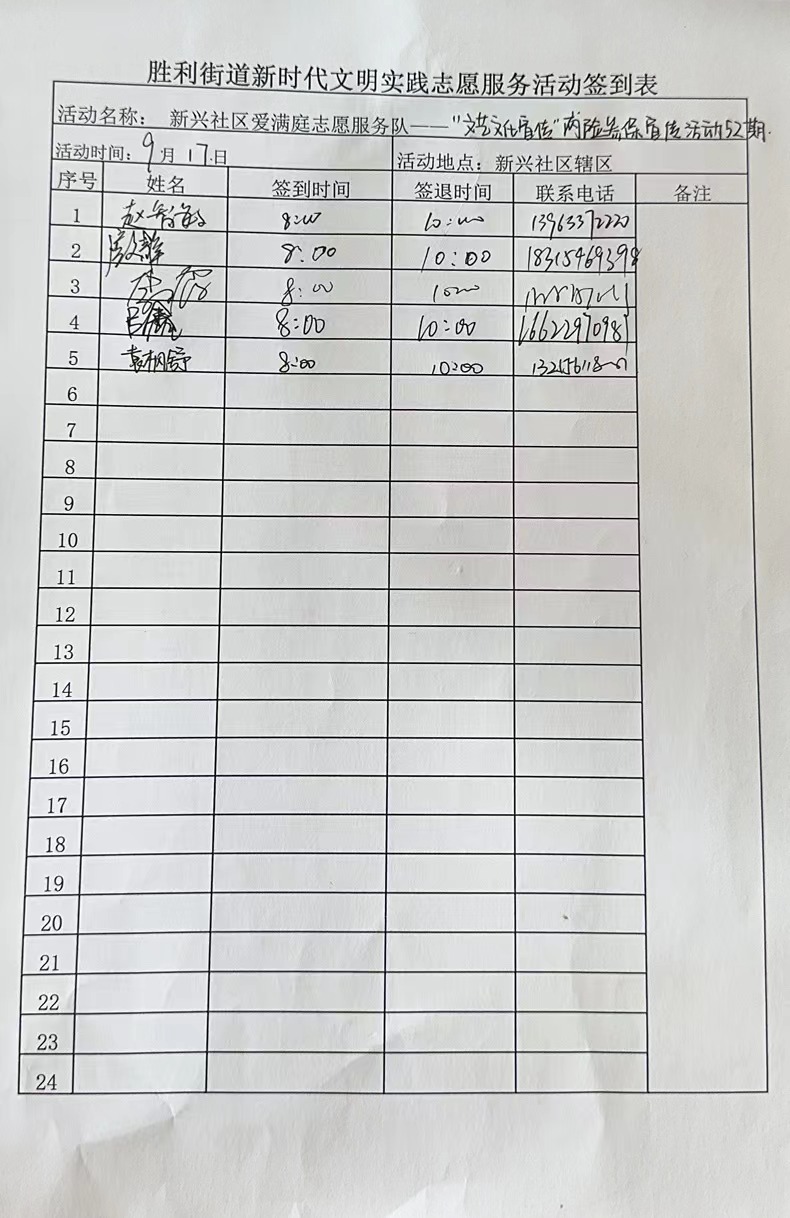 胜利街道新时代文明实践志愿服务活动签到表
活动名称： 新兴社区爱满庭志愿服务队——“文艺文化宣传”两险参保宣传活动52期.
活动时间：9月17日 活动地点：新兴社区辖区
序号 姓名 签到时间 签退时间 联系电话 备注
1 赵智敏 8:00 10:00 13963372220
2 8:00 10:00 18315469398
3 8:00 1000
4 8:00 10:00 16622970981
5 袁枫舒 8:00 10:00
6
7
8
9
10
11
12
13
14
15
16
17
18
19
20
21
22
23
24